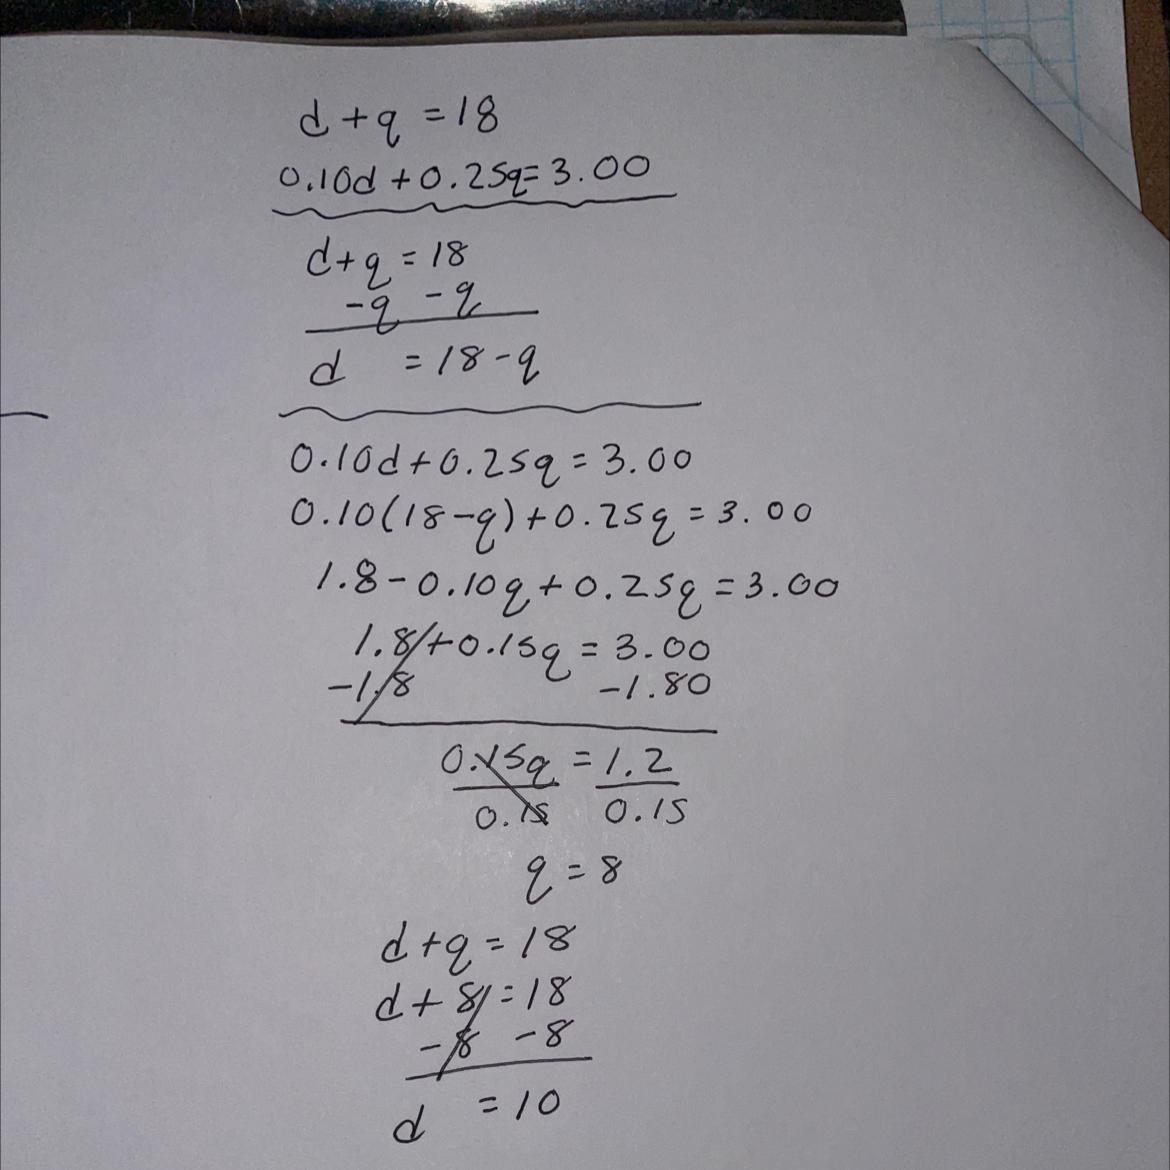 d + q = 18
0.10d + 0.25q = 3.00
d + q = 18
-q -q
d = 18 - q
0.10d + 0.25q = 3.00
0.10(18 - q) + 0.25q = 3.00
1.8 - 0.10q + 0.25q = 3.00
1.8 + 0.15q = 3.00
-1.8 -1.80
0.15q = 1.2
0.15 0.15
q = 8
d + q = 18
d + 8 = 18
-8 -8
d = 10